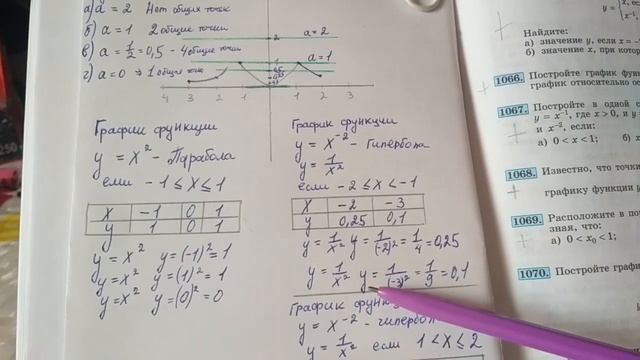 а) a = 2 Нет общих точек
б) a = 1 2 общие точки
в) a = 1/2 = 0,5 - 4 общие точки
г) a = 0 → 1 общая точка
a = 2
a = 1
4 3 2 1 0 1 2 3
График функции
y = x² - Парабола
если -1 ≤ x ≤ 1
x -1 0 1
y 1 0 1
y = x² y = (-1)² = 1
y = x² y = (1)² = 1
y = x² y = (0)² = 0
График функции
y = x⁻² - Гипербола
y = 1/x²
если -2 ≤ x < -1
x -2 -3
y 0,25 0,1
y = 1/x² y = 1/(-2)² = 1/4 = 0,25
y = 1/x² y = 1/(-3)² = 1/9 = 0,1
График функ
y = x⁻² - гипербол
y = 1/x² если 1 < x ≤ 2
x⁻¹,
Найдите:
а) значение y, если x = -
б) значение x, при кото
1066. Постройте график фун
график относительно ос
1067. Постройте в одной с
y = x⁻¹, где x > 0, и y
и x⁻², если:
а) 0 < x < 1; б)
1068. Известно, что точки
графику функции
1069. Расположите в по
зная, что:
а) 0 < x₀ < 1;
1070. Постройте графи